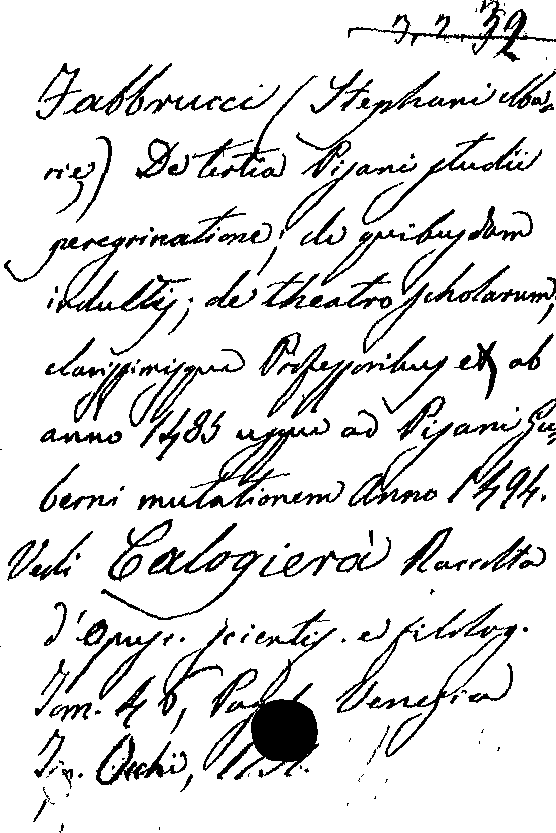 3.2.32
Fabbrucci (Stephani Ma=
rie) De tertia Pisani studii
peregrinatione; de quibusdam
indultis; de theatro scholarum,
clarissimisque Professoribus ex ab
anno 1485 usque ad Pisani Gu=
berni mutationem Anno 1494.
Vedi Calogierà Raccolta
d'Opusc. scientif. e filolog.
Tom. 46, Venezia
Occhi,